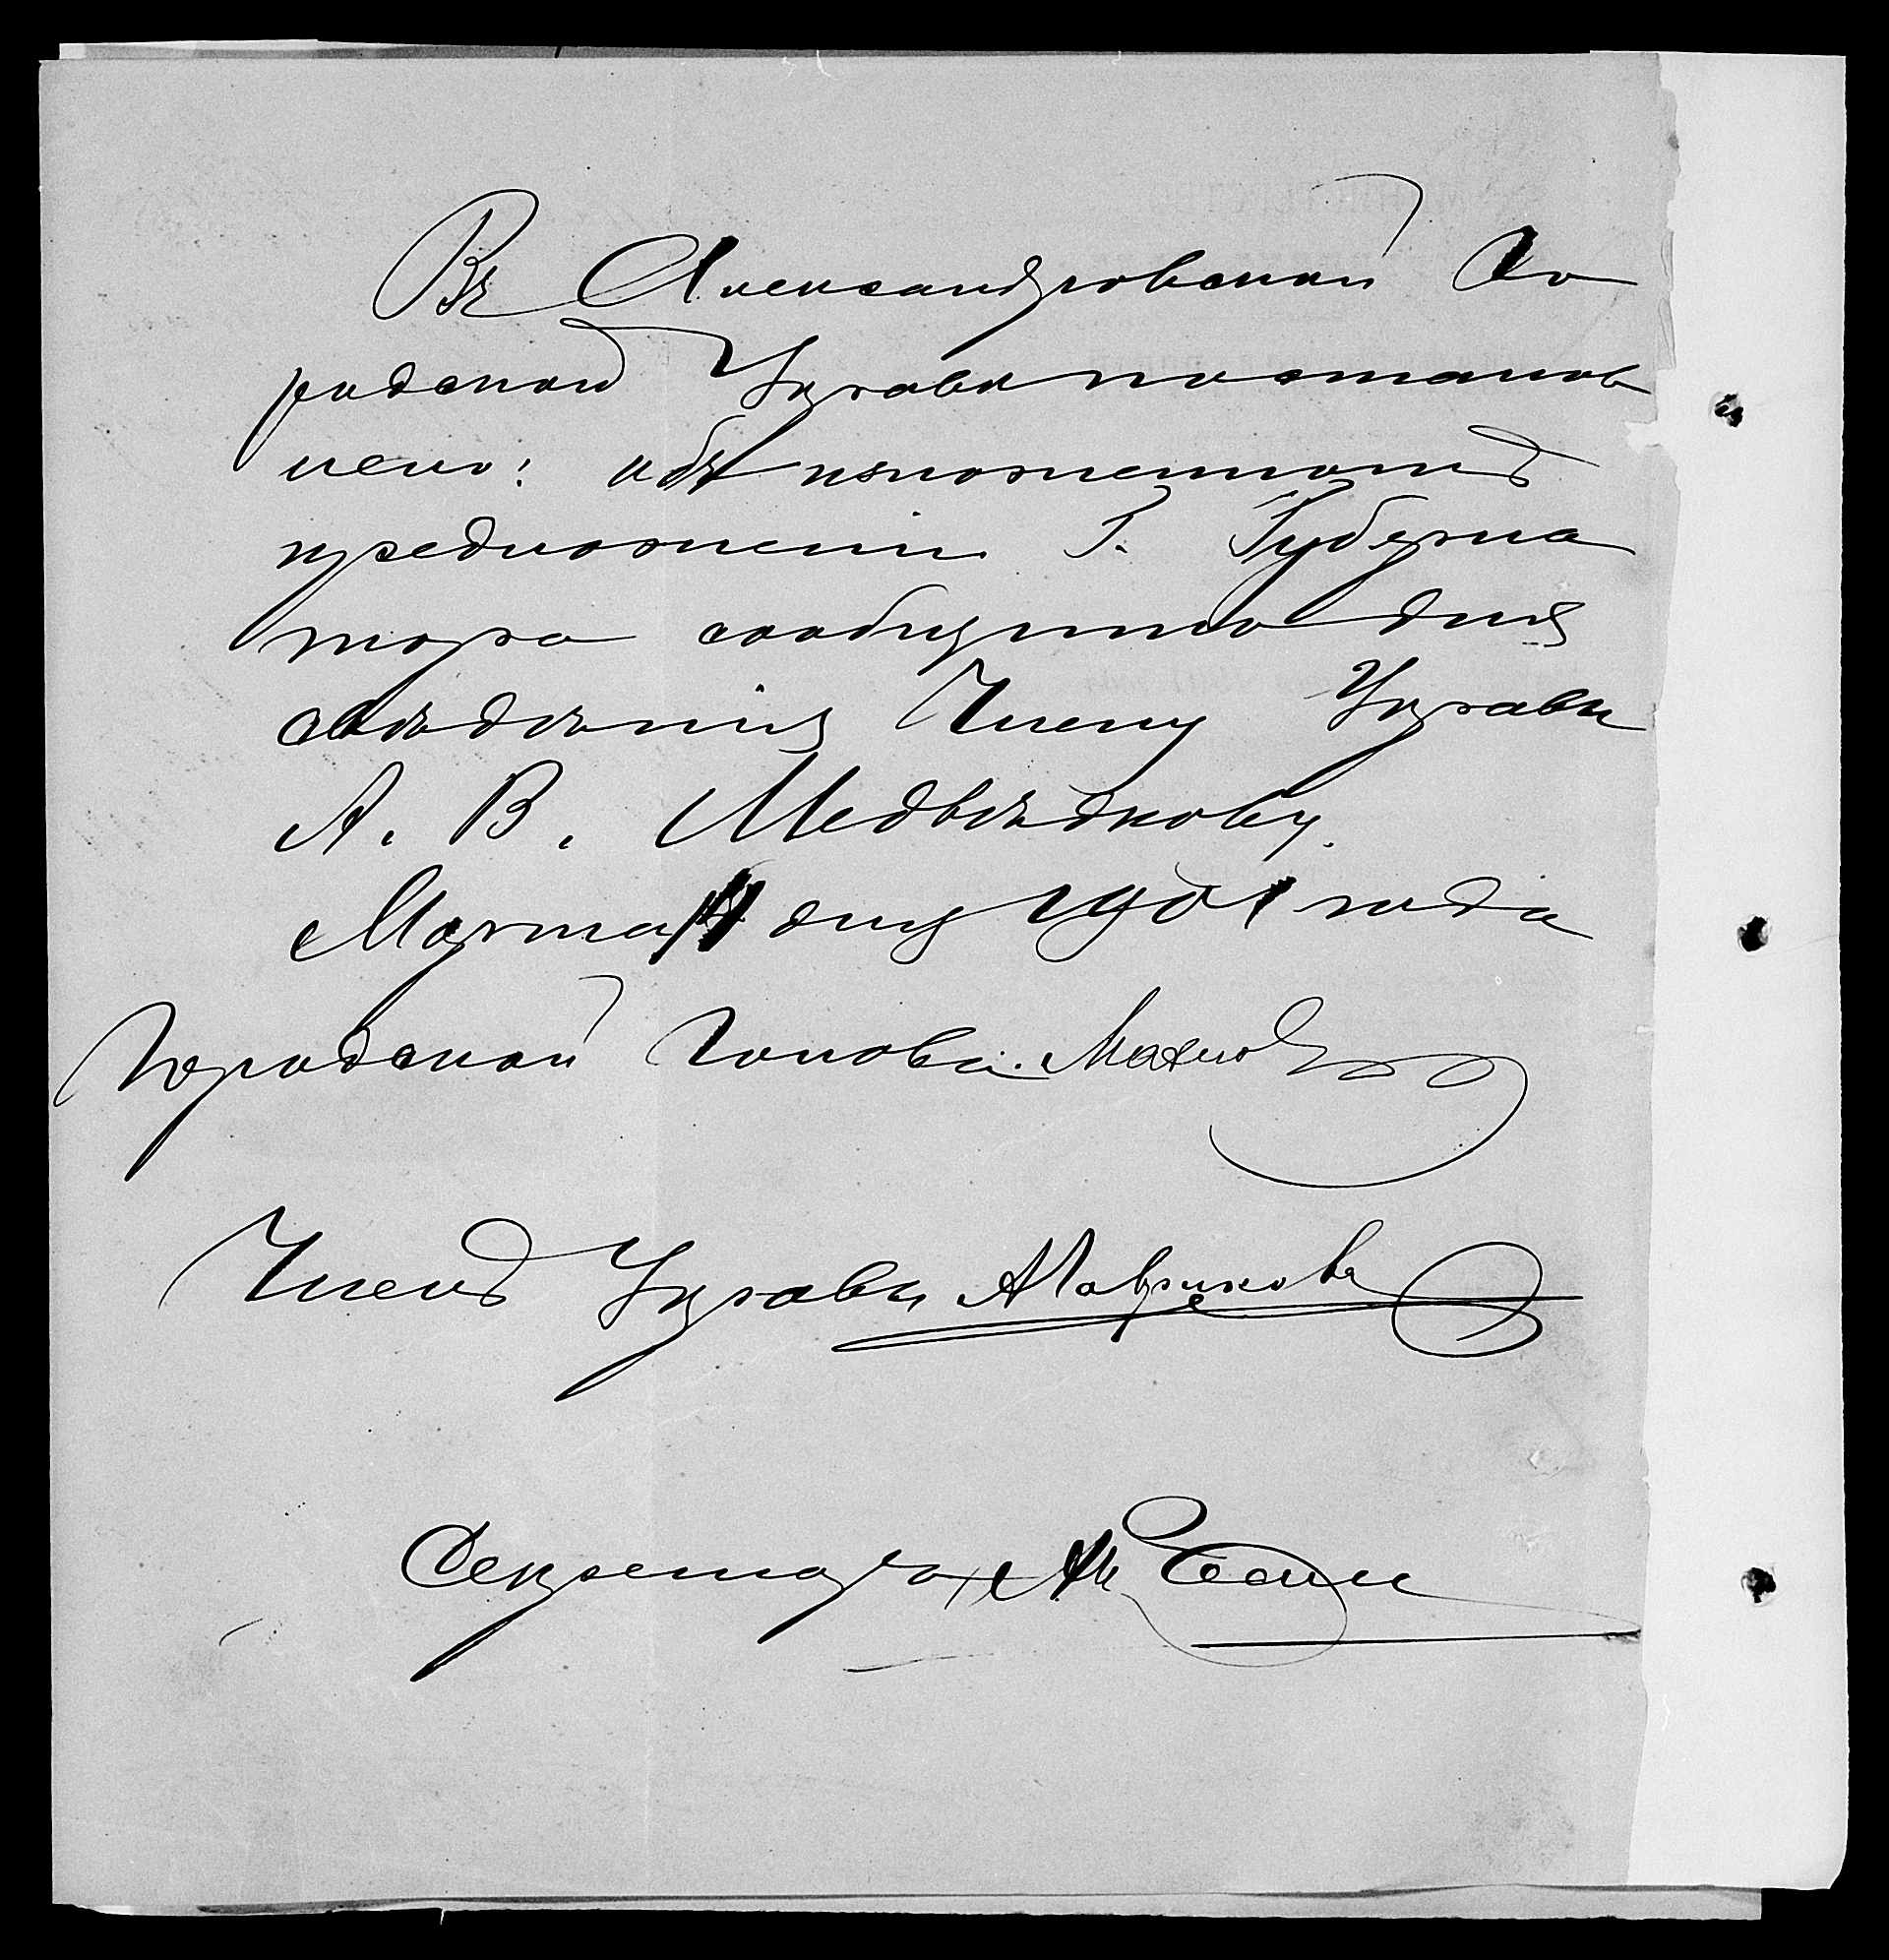 Въ Александровской Го
родской Управѣ постанов
лено: объ изложенномъ
предложеніи Г. Губерна
тора сообщить для
свѣдѣнія Члену Управы
А. В. Медвѣдкову.
Марта дня 1901 года
Городской Голова
Членъ Управы
Секретарь